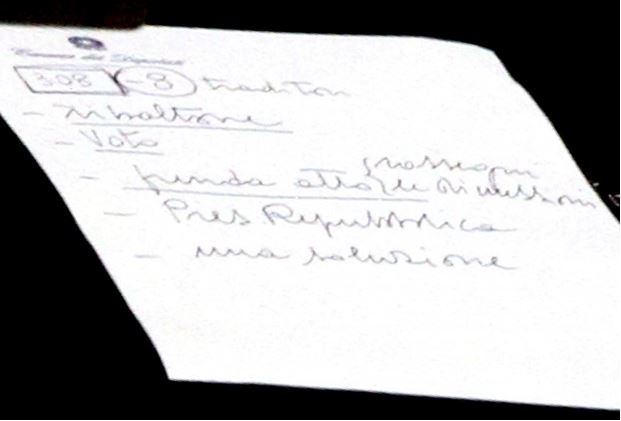 Camera dei Deputati
308 -8 traditori
- ribaltone
- Voto
rassegni
- prenda atto / le dimissioni
- Pres Repubblica
- una soluzione